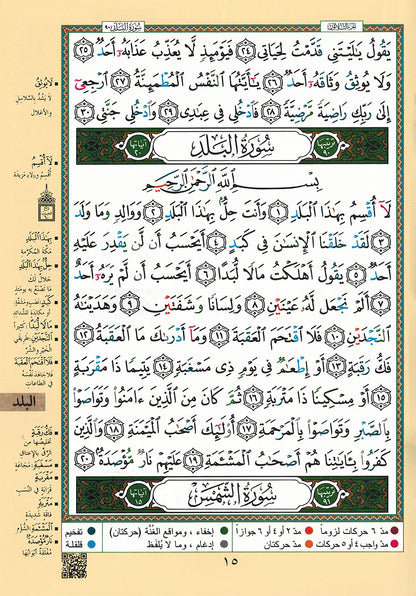 سورة البلد ٩٠
الجزء الثلاثون
يَقُولُ يَٰلَيْتَنِى قَدَّمْتُ لِحَيَاتِى ٢٤ فَيَوْمَئِذٍ لَّا يُعَذِّبُ عَذَابَهُۥٓ أَحَدٌ ٢٥
وَلَا يُوثِقُ وَثَاقَهُۥٓ أَحَدٌ ٢٦ يَٰٓأَيَّتُهَا ٱلنَّفْسُ ٱلْمُطْمَئِنَّةُ ٢٧ ٱرْجِعِىٓ
إِلَىٰ رَبِّكِ رَاضِيَةً مَّرْضِيَّةً ٢٨ فَٱدْخُلِى فِى عِبَٰدِى ٢٩ وَٱدْخُلِى جَنَّتِى ٣٠
ترتيبها ٩٠ سُورَةُ البَلَدِ آياتها ٢٠
بِسْمِ ٱللَّهِ ٱلرَّحْمَٰنِ ٱلرَّحِيمِ
لَآ أُقْسِمُ بِهَٰذَا ٱلْبَلَدِ ١ وَأَنتَ حِلٌّۢ بِهَٰذَا ٱلْبَلَدِ ٢ وَوَالِدٍ وَمَا وَلَدَ
٣ لَقَدْ خَلَقْنَا ٱلْإِنسَٰنَ فِى كَبَدٍ ٤ أَيَحْسَبُ أَن لَّن يَقْدِرَ عَلَيْهِ
أَحَدٌ ٥ يَقُولُ أَهْلَكْتُ مَالًا لُّبَدًا ٦ أَيَحْسَبُ أَن لَّمْ يَرَهُۥٓ أَحَدٌ
٧ أَلَمْ نَجْعَل لَّهُۥ عَيْنَيْنِ ٨ وَلِسَانًا وَشَفَتَيْنِ ٩ وَهَدَيْنَٰهُ
ٱلنَّجْدَيْنِ ١٠ فَلَا ٱقْتَحَمَ ٱلْعَقَبَةَ ١١ وَمَآ أَدْرَىٰكَ مَا ٱلْعَقَبَةُ ١٢
فَكُّ رَقَبَةٍ ١٣ أَوْ إِطْعَٰمٌ فِى يَوْمٍ ذِى مَسْغَبَةٍ ١٤ يَتِيمًا ذَا مَقْرَبَةٍ
١٥ أَوْ مِسْكِينًا ذَا مَتْرَبَةٍ ١٦ ثُمَّ كَانَ مِنَ ٱلَّذِينَ ءَامَنُوا۟ وَتَوَاصَوْا۟
بِٱلصَّبْرِ وَتَوَاصَوْا۟ بِٱلْمَرْحَمَةِ ١٧ أُو۟لَٰٓئِكَ أَصْحَٰبُ ٱلْمَيْمَنَةِ ١٨ وَٱلَّذِينَ
كَفَرُوا۟ بِـَٔايَٰتِنَا هُمْ أَصْحَٰبُ ٱلْمَشْـَٔمَةِ ١٩ عَلَيْهِمْ نَارٌ مُّؤْصَدَةٌۢ ٢٠
ترتيبها ٩١ سُورَةُ الشَّمْسِ آياتها ١٥
لَا يُوثِقُ
لَا يَشُدُّ بالسلاسل
والأغلال
لَا أُقْسِمُ
أُقسم و لا مزيدة
بِهَذَا البَلَدِ
مكة المكرّمة
حِلٌّ بهذا البَلَدِ
حلال لك
ما تصنعه به يومئذ
مَالًا لُّبَدًا
كثيرا
النَّجْدَيْنِ
طريقي
الخير والشر
فَلَا اقْتَحَمَ العَقَبَةَ
فلا جاهد نفسه
في الطاعات
البلد
فَكُّ رَقَبَةٍ
تخليصها من
الرّق بالإعتاق
مَسْغَبَةٍ
مجاعة
مَقْرَبَةٍ
قرابة في النسب
مَتْرَبَةٍ
فاقة شديدة
المَشْأَمَةِ
الشؤم
نَارٌ مُؤْصَدَةٌ
مغلقة أبوابها
مدّ ٦ حركات لزوماً
مدّ ٢ أو ٤ أو ٦ جوازاً
إخفاء، ومواقع الغُنَّة (حركتان)
تفخيم
مدّ واجب ٤ أو ٥ حركات
مدّ حركتان
إدغام، وما لا يُلفَظ
قلقلة
١٥